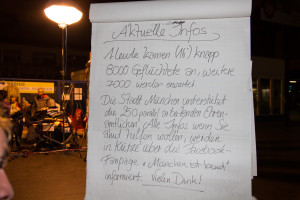 Aktuelle Infos
Heute kamen knapp
8000 Geflüchtete an, weitere
7000 werden erwartet
Die Stadt München unterstützt
den 250 parallel arbeitenden Ehren-
amtlichen. Alle Infos wenn Sie
helfen wollen, werden
in Kürze über die Facebook-
Fanpage "München ist bunt"
informiert. Vielen Dank!